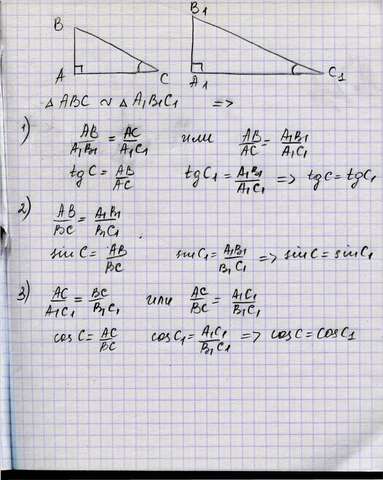 B B₁
A C A₁ C₁
△ ABC ∾ △ A₁B₁C₁ =>
1) AB/A₁B₁ = AC/A₁C₁ или AB/AC = A₁B₁/A₁C₁
tg C = AB/AC tg C₁ = A₁B₁/A₁C₁ => tg C = tg C₁
2) AB/BC = A₁B₁/B₁C₁ .
sin C = AB/BC sin C₁ = A₁B₁/B₁C₁ => sin C = sin C₁
3) AC/A₁C₁ = BC/B₁C₁ или AC/BC = A₁C₁/B₁C₁
cos C = AC/BC cos C₁ = A₁C₁/B₁C₁ => cos C = cos C₁